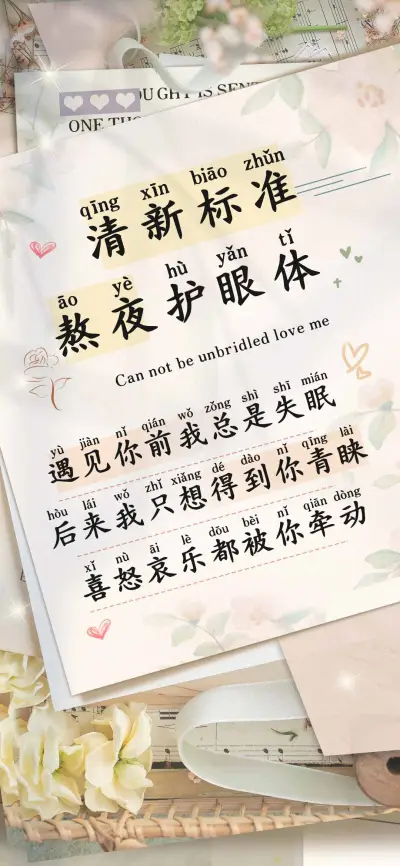 OUGHT IS SENT
ONE THO
qīng xīn biāo zhǔn
清新标准
āo yè hù yǎn tǐ
熬夜护眼体
Can not be unbridled love me
yù jiàn nǐ qián wǒ zǒng shì shī mián
遇见你前我总是失眠
hòu lái wǒ zhǐ xiǎng dé dào nǐ qīng lài
后来我只想得到你青睐
xǐ nù āi lè dōu bèi nǐ qiān dòng
喜怒哀乐都被你牵动